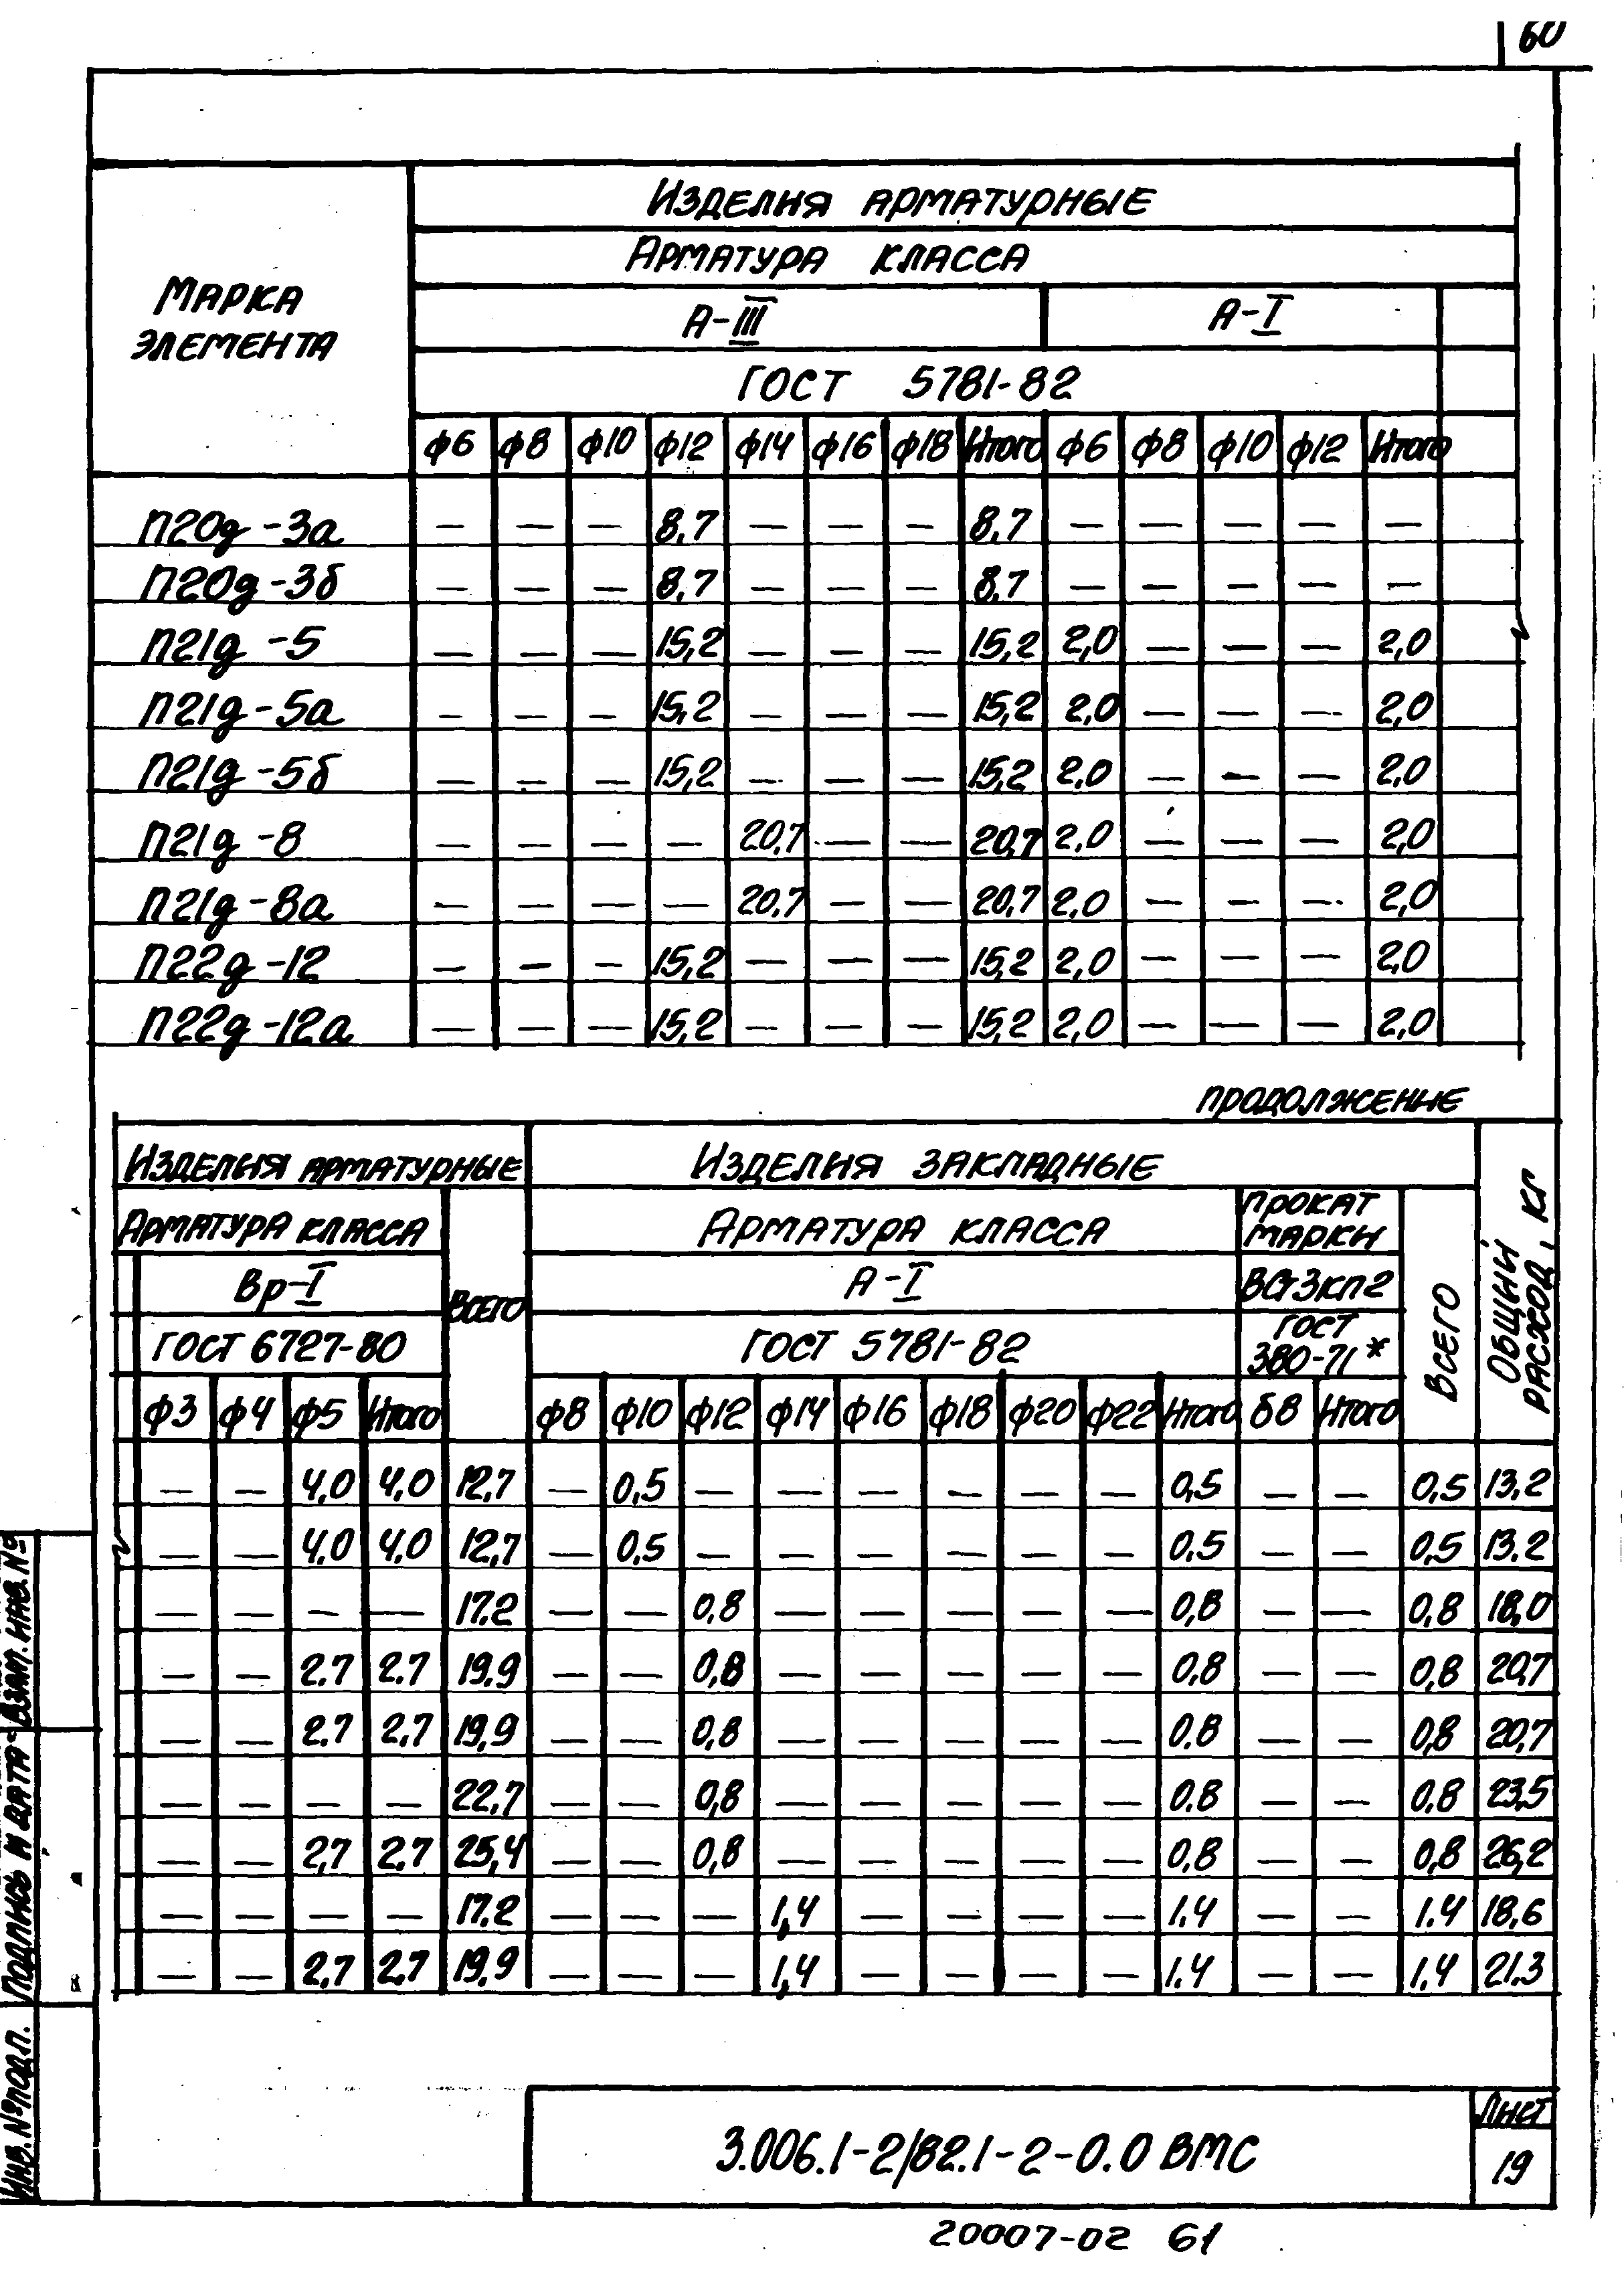 60
Изделия арматурные
Арматура класса
Марка элемента
А-III А-I
ГОСТ 5781-82
ф6 ф8 ф10 ф12 ф14 ф16 ф18 Итого ф6 ф8 ф10 ф12 Итого
П20д-3а — — — 8,7 — — — 8,7 — — — — —
П20д-3б — — — 8,7 — — — 8,7 — — — — —
П21д-5 — — — 15,2 — — — 15,2 2,0 — — — 2,0
П21д-5а — — — 15,2 — — — 15,2 2,0 — — — 2,0
П21д-5б — — — 15,2 — — — 15,2 2,0 — — — 2,0
П21д-8 — — — — 20,7 — — 20,7 2,0 — — — 2,0
П21д-8а — — — — 20,7 — — 20,7 2,0 — — — 2,0
П22д-12 — — — 15,2 — — — 15,2 2,0 — — — 2,0
П22д-12а — — — 15,2 — — — 15,2 2,0 — — — 2,0
продолжение
Изделия арматурные Изделия закладные Общий расход, кг
Арматура класса Всего Арматура класса Прокат марки Всего
Вр-I А-I ВСт3кп2
ГОСТ 6727-80 ГОСТ 5781-82 ГОСТ 380-71*
ф3 ф4 ф5 Итого ф8 ф10 ф12 ф14 ф16 ф18 ф20 ф22 Итого б8 Итого
— — 4,0 4,0 12,7 — 0,5 — — — — — — 0,5 — — 0,5 13,2
— — 4,0 4,0 12,7 — 0,5 — — — — — — 0.5 — — 0,5 13.2
— — — — 17.2 — — 0,8 — — — — — 0,8 — — 0,8 18,0
— — 2.7 2.7 19,9 — — 0,8 — — — — — 0,8 — — 0,8 20,7
— — 2.7 2.7 19,9 — — 0,8 — — — — — 0.8 — — 0,8 20,7
— — — — 22,7 — — 0,8 — — — — — 0.8 — — 0,8 23,5
— — 2,7 2.7 25,4 — — 0,8 — — — — — 0,8 — — 0,8 26,2
— — — — 17.2 — — — 1,4 — — — — 1.4 — — 1.4 18,6
— — 2,7 2.7 19,9 — — — 1,4 — — — — 1.4 — — 1,4 21.3
Инв. № подл. Подпись и дата Взам. инв. №
3.006.1-2/82.1-2-0.0 ВМС
Лист
19
20007-02 61